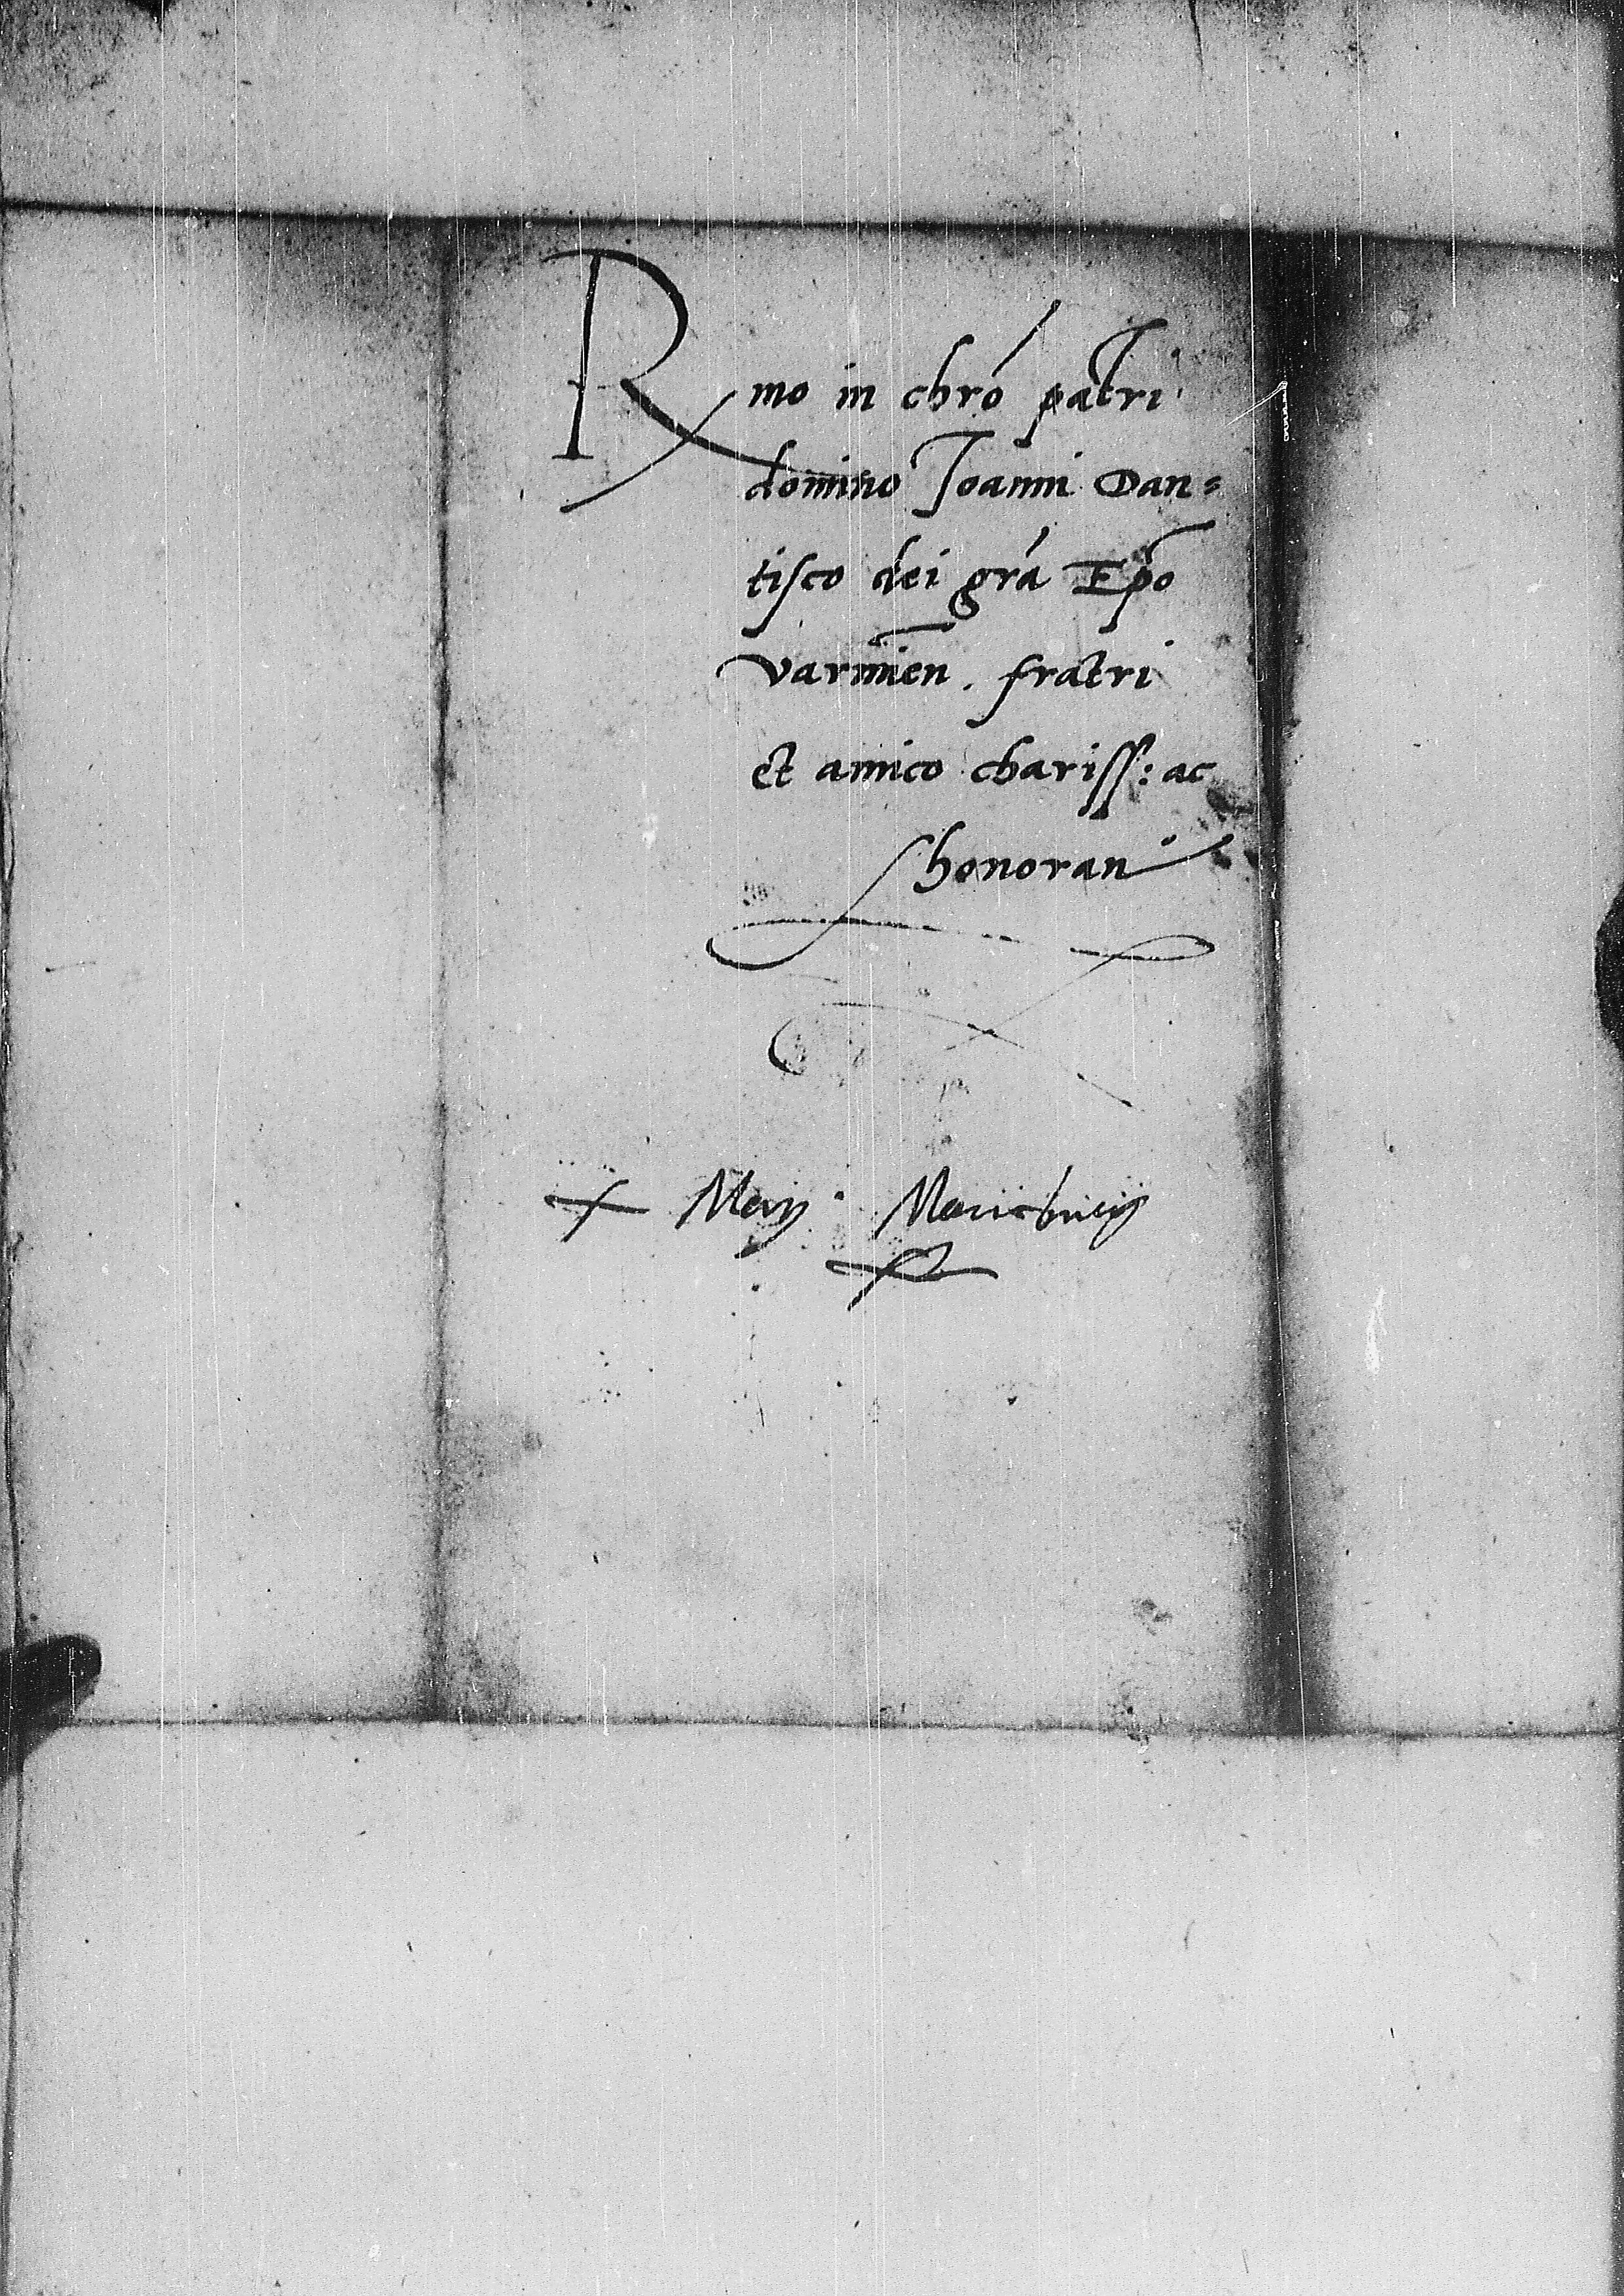 Rmo in chrō patri
domino Joanni Dan=
tisco dei grā Epō
varmień. fratri
et amico chariss: ac
honoran
Maij Marieburgij